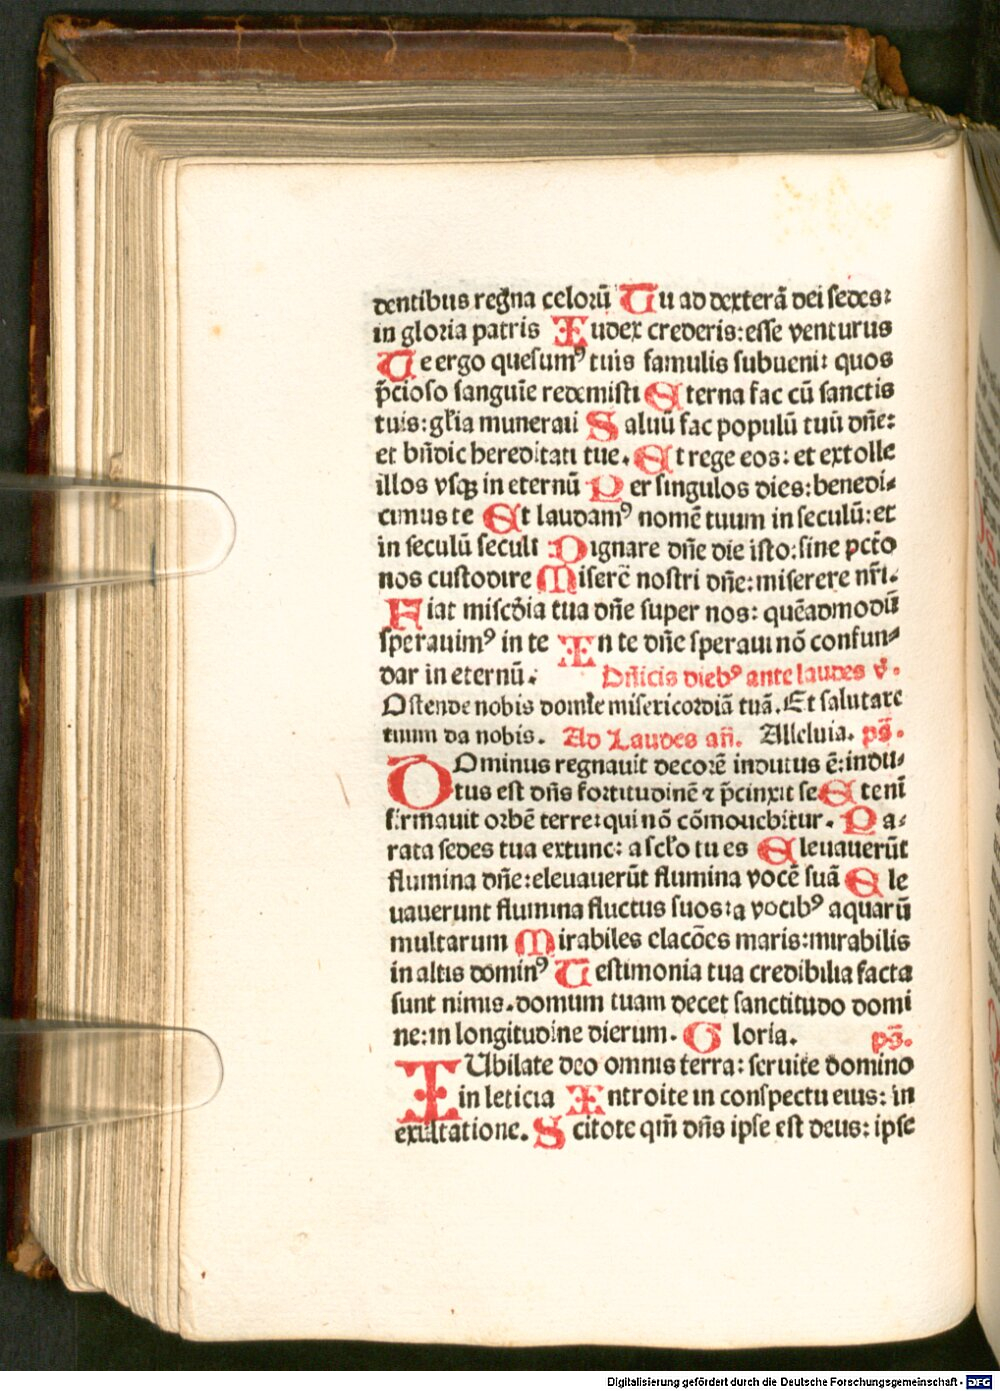 dentibus regna celorū Tu ad dexterā dei sedes:
in gloria patris Iudex crederis: esse venturus
Te ergo quesumꝰ tuis famulis subueni: quos
p̄cioso sanguīe redemisti Eterna fac cū sanctis
tuis: gl̄ia munerari Saluū fac populū tuū dn̄e:
et bn̄dic hereditati tue. Et rege eos: et extolle
illos vsqꝫ in eternū Per singulos dies: benedi-
cimus te Et laudamꝰ nomē tuum in seculū: et
in seculū seculi Dignare dn̄e die isto: sine pct̄o
nos custodire Miserē nostri dn̄e: miserere nr̄i.
Fiat misc̄dia tua dn̄e super nos: quēadmodū
sperauimꝰ in te In te dn̄e speraui nō confun-
dar in eternū. Dn̄icis diebꝰ ante laudes v̄.
Ostende nobis domīe misericordiā tuā. Et salutare
tuum da nobis. Ad Laudes an̄. Alleluia. ps̄.
DOminus regnauit decorē indutus ē: indu-
tus est dn̄s fortitudinē ⁊ p̄cinxit se Etenī
firmauit orbē terre: qui nō cōmouebitur. Pa-
rata sedes tua extunc: a scl̄o tu es Eleuauerūt
flumina dn̄e: eleuauerūt flumina vocē suā Ele
uauerunt flumina fluctus suos: a vocibꝰ aquarū
multarum Mirabiles elacōes maris: mirabilis
in altis dominꝰ Testimonia tua credibilia facta
sunt nimis. domum tuam decet sanctitudo domi
ne: in longitudine dierum. Gloria. ps̄.
IUbilate deo omnis terra: seruite domino
in leticia Introite in conspectu eius: in
exultatione. Scitote qm̄ dn̄s ipse est deus: ipse
Digitalisierung gefördert durch die Deutsche Forschungsgemeinschaft - DFG